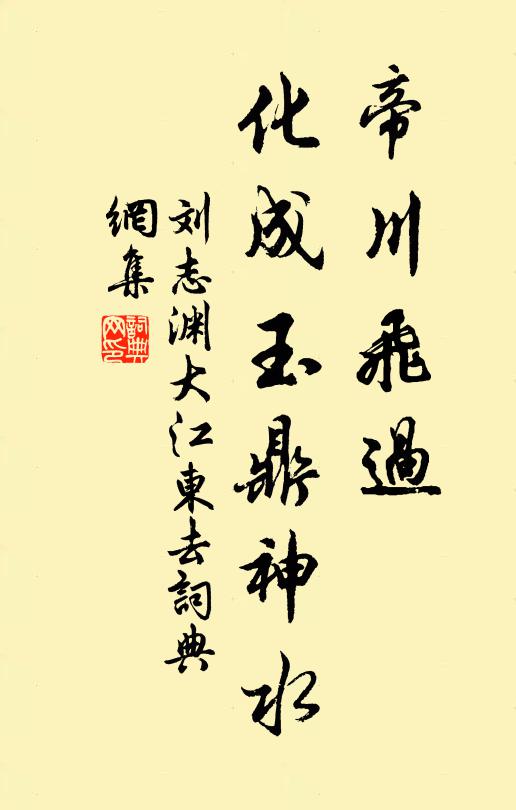 帝川飛過
化成玉鼎神水
刘志渊大江東去詞典
網集
詞典
网印